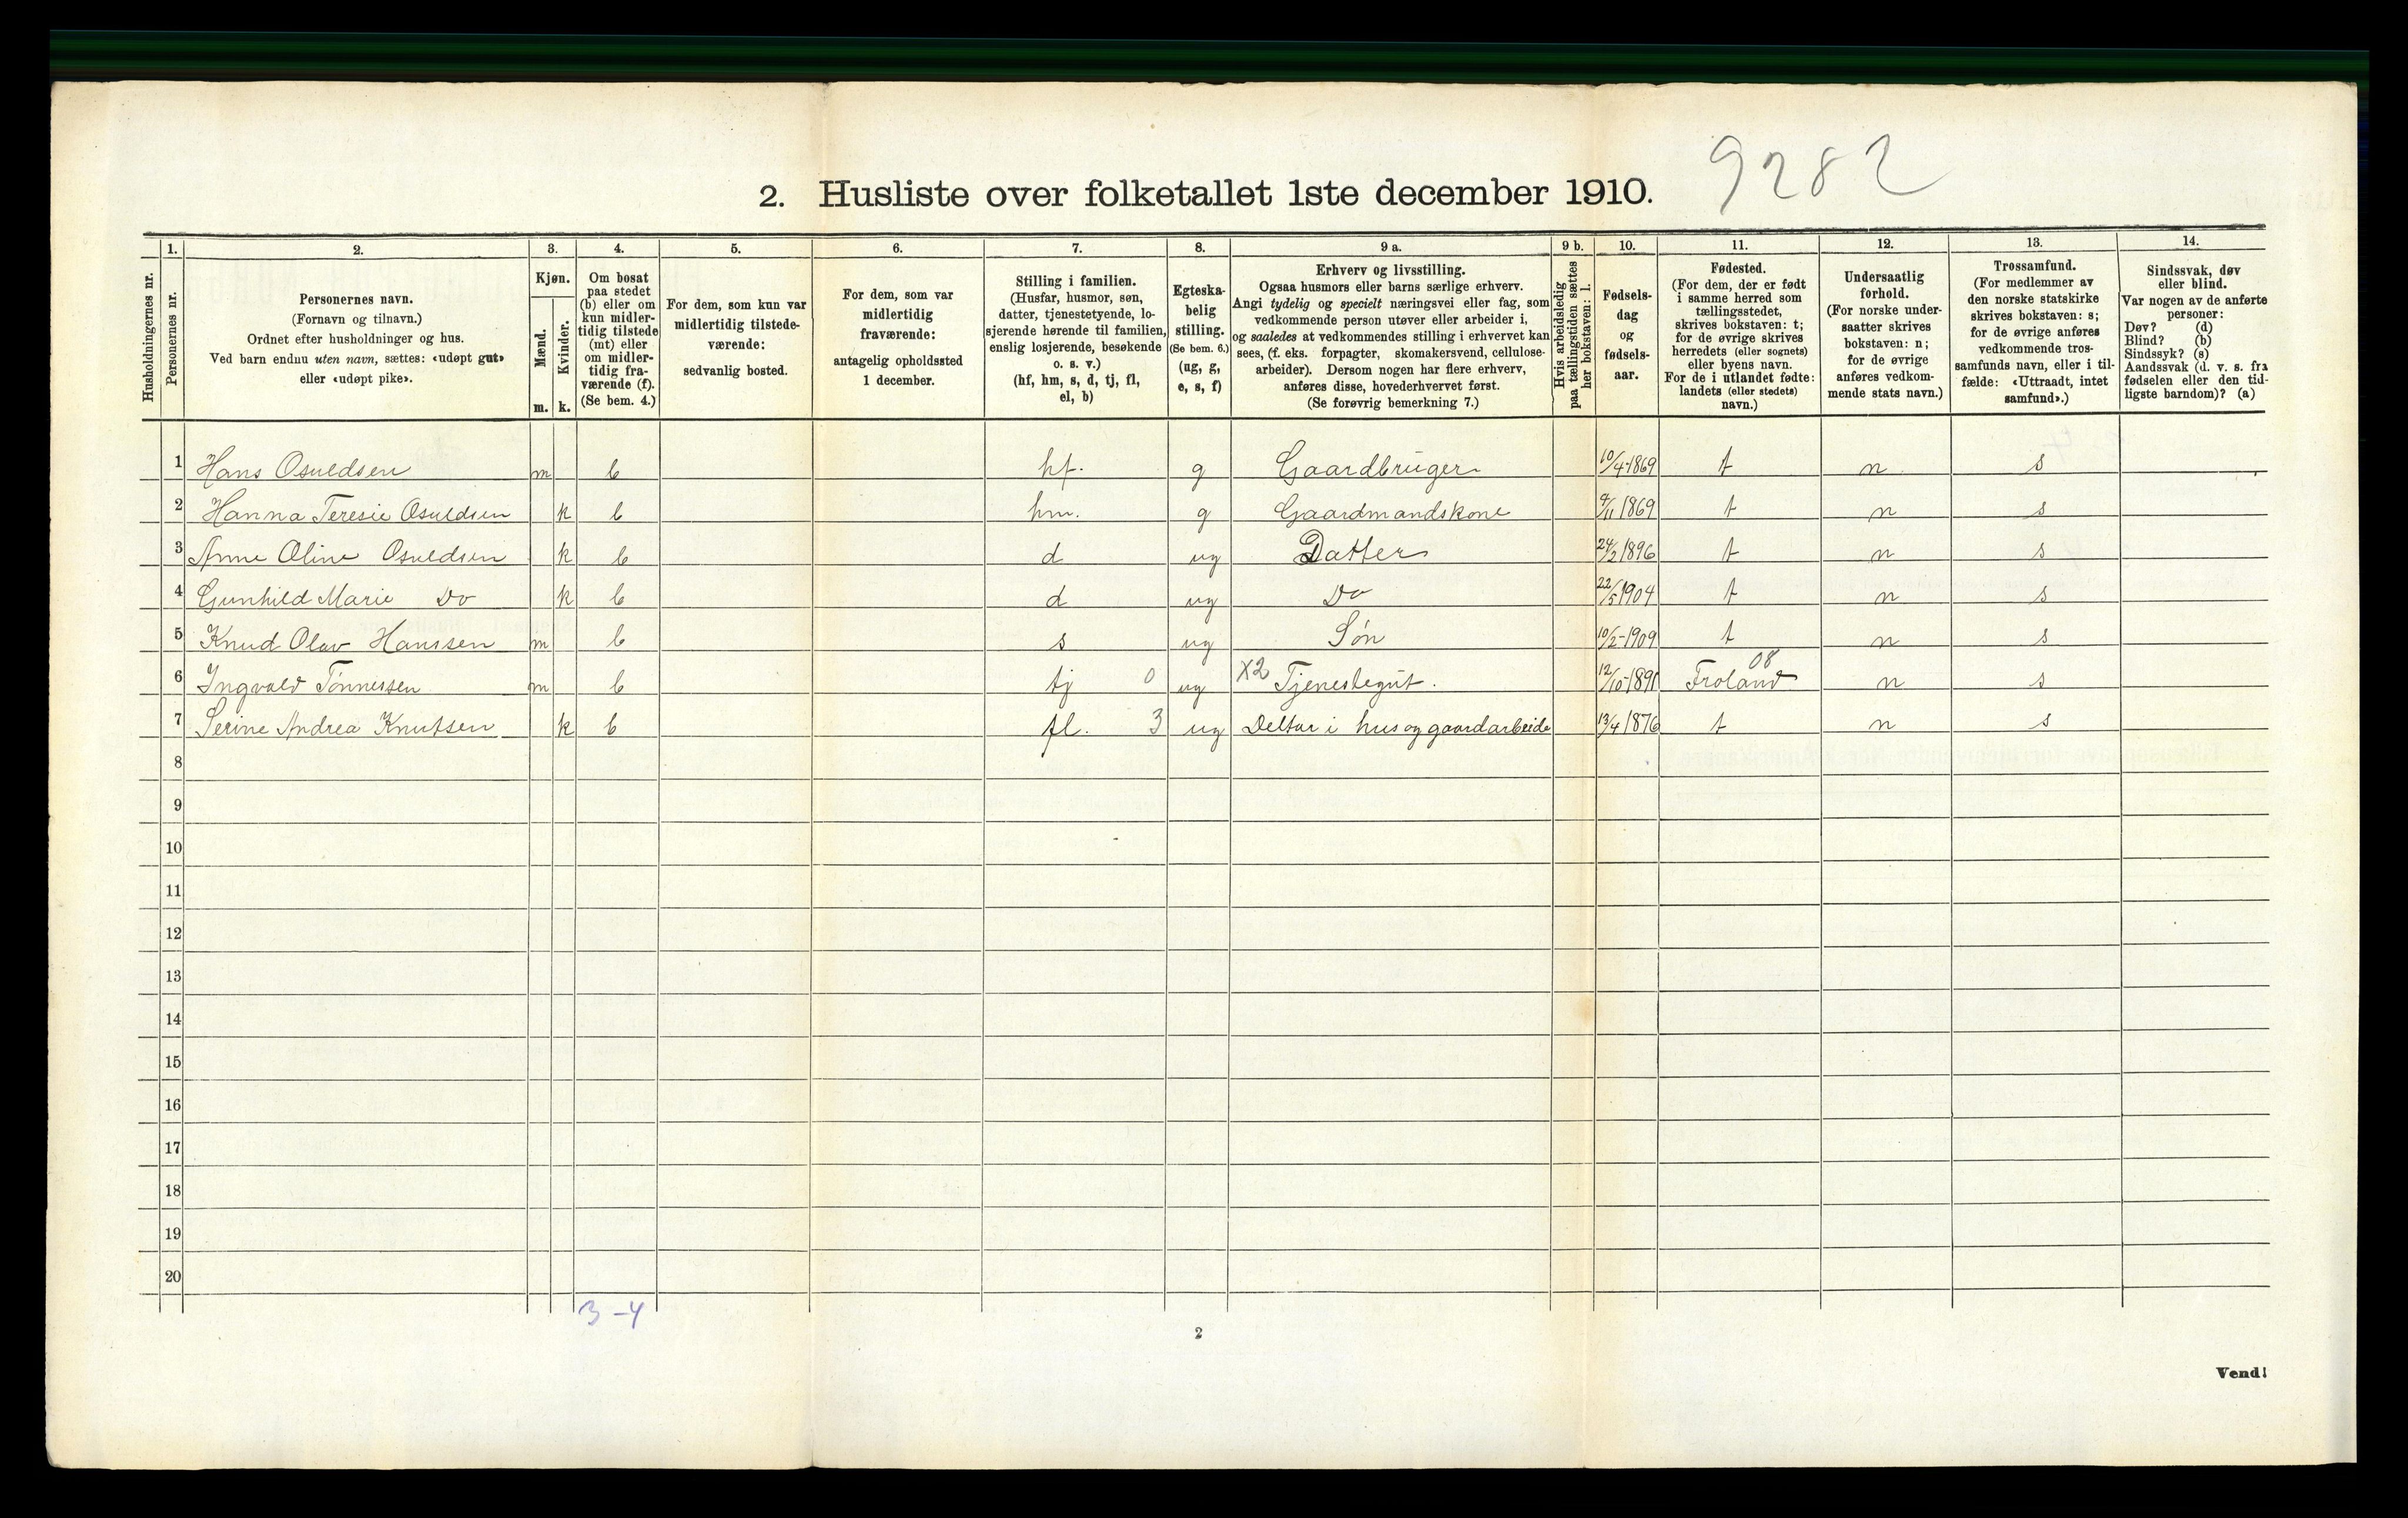 9282
2. Husliste over folketallet 1ste december 1910.
Husholdningernes nr.
1.
Personernes nr.
2.
Personernes navn.
(Fornavn og tilnavn.)
Ordnet efter husholdninger og hus.
Ved barn endnu uten navn, sættes: «udøpt gut»
eller «udøpt pike».
3.
Kjøn.
Mænd.
m.
Kvinder.
k.
4.
Om bosat
paa stedet
(b) eller om
kun midler-
tidig tilstede
(mt) eller
om midler-
tidig fra-
værende (f).
(Se bem. 4.)
5.
For dem, som kun var
midlertidig tilstede-
værende:
sedvanlig bosted.
6.
For dem, som var
midlertidig
fraværende:
antagelig opholdssted
1 december.
7.
Stilling i familien.
(Husfar, husmor, søn,
datter, tjenestetyende, lo-
sjerende hørende til familien,
enslig losjerende, besøkende
o. s. v.)
(hf, hm, s, d, tj, fl,
el, b)
8.
Egteska-
belig
stilling.
(Se bem. 6.)
(ug, g,
e, s, f)
9 a.
Erhverv og livsstilling.
Ogsaa husmors eller barns særlige erhverv.
Angi tydelig og specielt næringsvei eller fag, som
vedkommende person utøver eller arbeider i,
og saaledes at vedkommendes stilling i erhvervet kan
sees, (f. eks. forpagter, skomakersvend, cellulose-
arbeider). Dersom nogen har flere erhverv,
anføres disse, hovederhvervet først.
(Se forøvrig bemerkning 7.)
9 b.
Hvis arbeidsledig
paa tællingstiden sættes
her bokstaven: l.
10.
Fødsels-
dag
og
fødsels-
aar.
11.
Fødested.
(For dem, der er født
i samme herred som
tællingsstedet,
skrives bokstaven: t;
for de øvrige skrives
herredets (eller sognets)
eller byens navn.
For de i utlandet fødte:
landets (eller stedets)
navn.)
12.
Undersaatlig
forhold.
(For norske under-
saatter skrives
bokstaven: n;
for de øvrige
anføres vedkom-
mende stats navn.)
13.
Trossamfund.
(For medlemmer av
den norske statskirke
skrives bokstaven: s;
for de øvrige anføres
vedkommende tros-
samfunds navn, eller i til-
fælde: «Uttraadt, intet
samfund».)
14.
Sindssvak, døv
eller blind.
Var nogen av de anførte
personer:
Døv? (d)
Blind? (b)
Sindssyk? (s)
Aandssvak (d. v. s. fra
fødselen eller den tid-
ligste barndom)? (a)
1 Hans Osuldsen m b hf. g Gaardbruger 10/4-1869 t n s
2 Hanna Teresie Osuldsen k b hm. g Gaardmandskone 9/11 1869 t n s
3 Anne Oline Osuldsen k b d ug Datter 24/2 1896 t n s
4 Gunhild Marie Do k b d ug Do 22/5 1904 t n s
5 Knud Olav Hanssen m b s ug Søn 10/2-1909 t n s
6 Ingvald Tønnessen m b tj 0 ug X2 Tjenestegut. 12/10-1891 Froland 08 n s
7 Serine Andrea Knutsen k b fl. 3 ug Deltar i hus og gaardarbeide 13/4 1876 t n s
8
9
10
11
12
13
14
15
16
17
18
19
20
3 - 4
2
Vend!